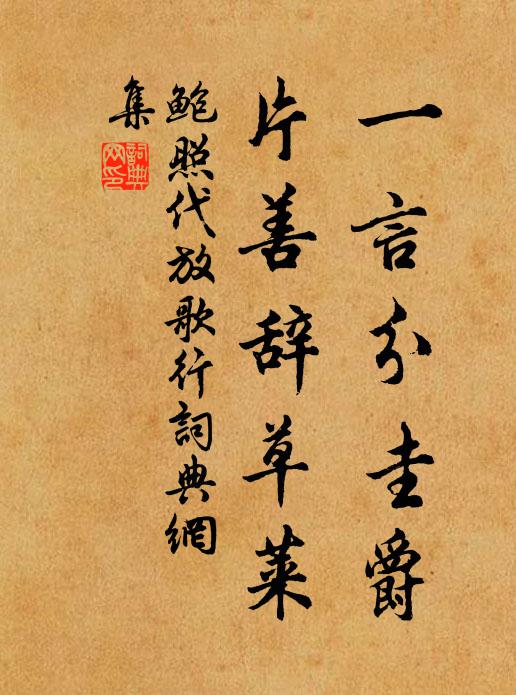 一言分圭爵
片善辞草莱
鲍照代放歌行詞典網
集
詞典網印